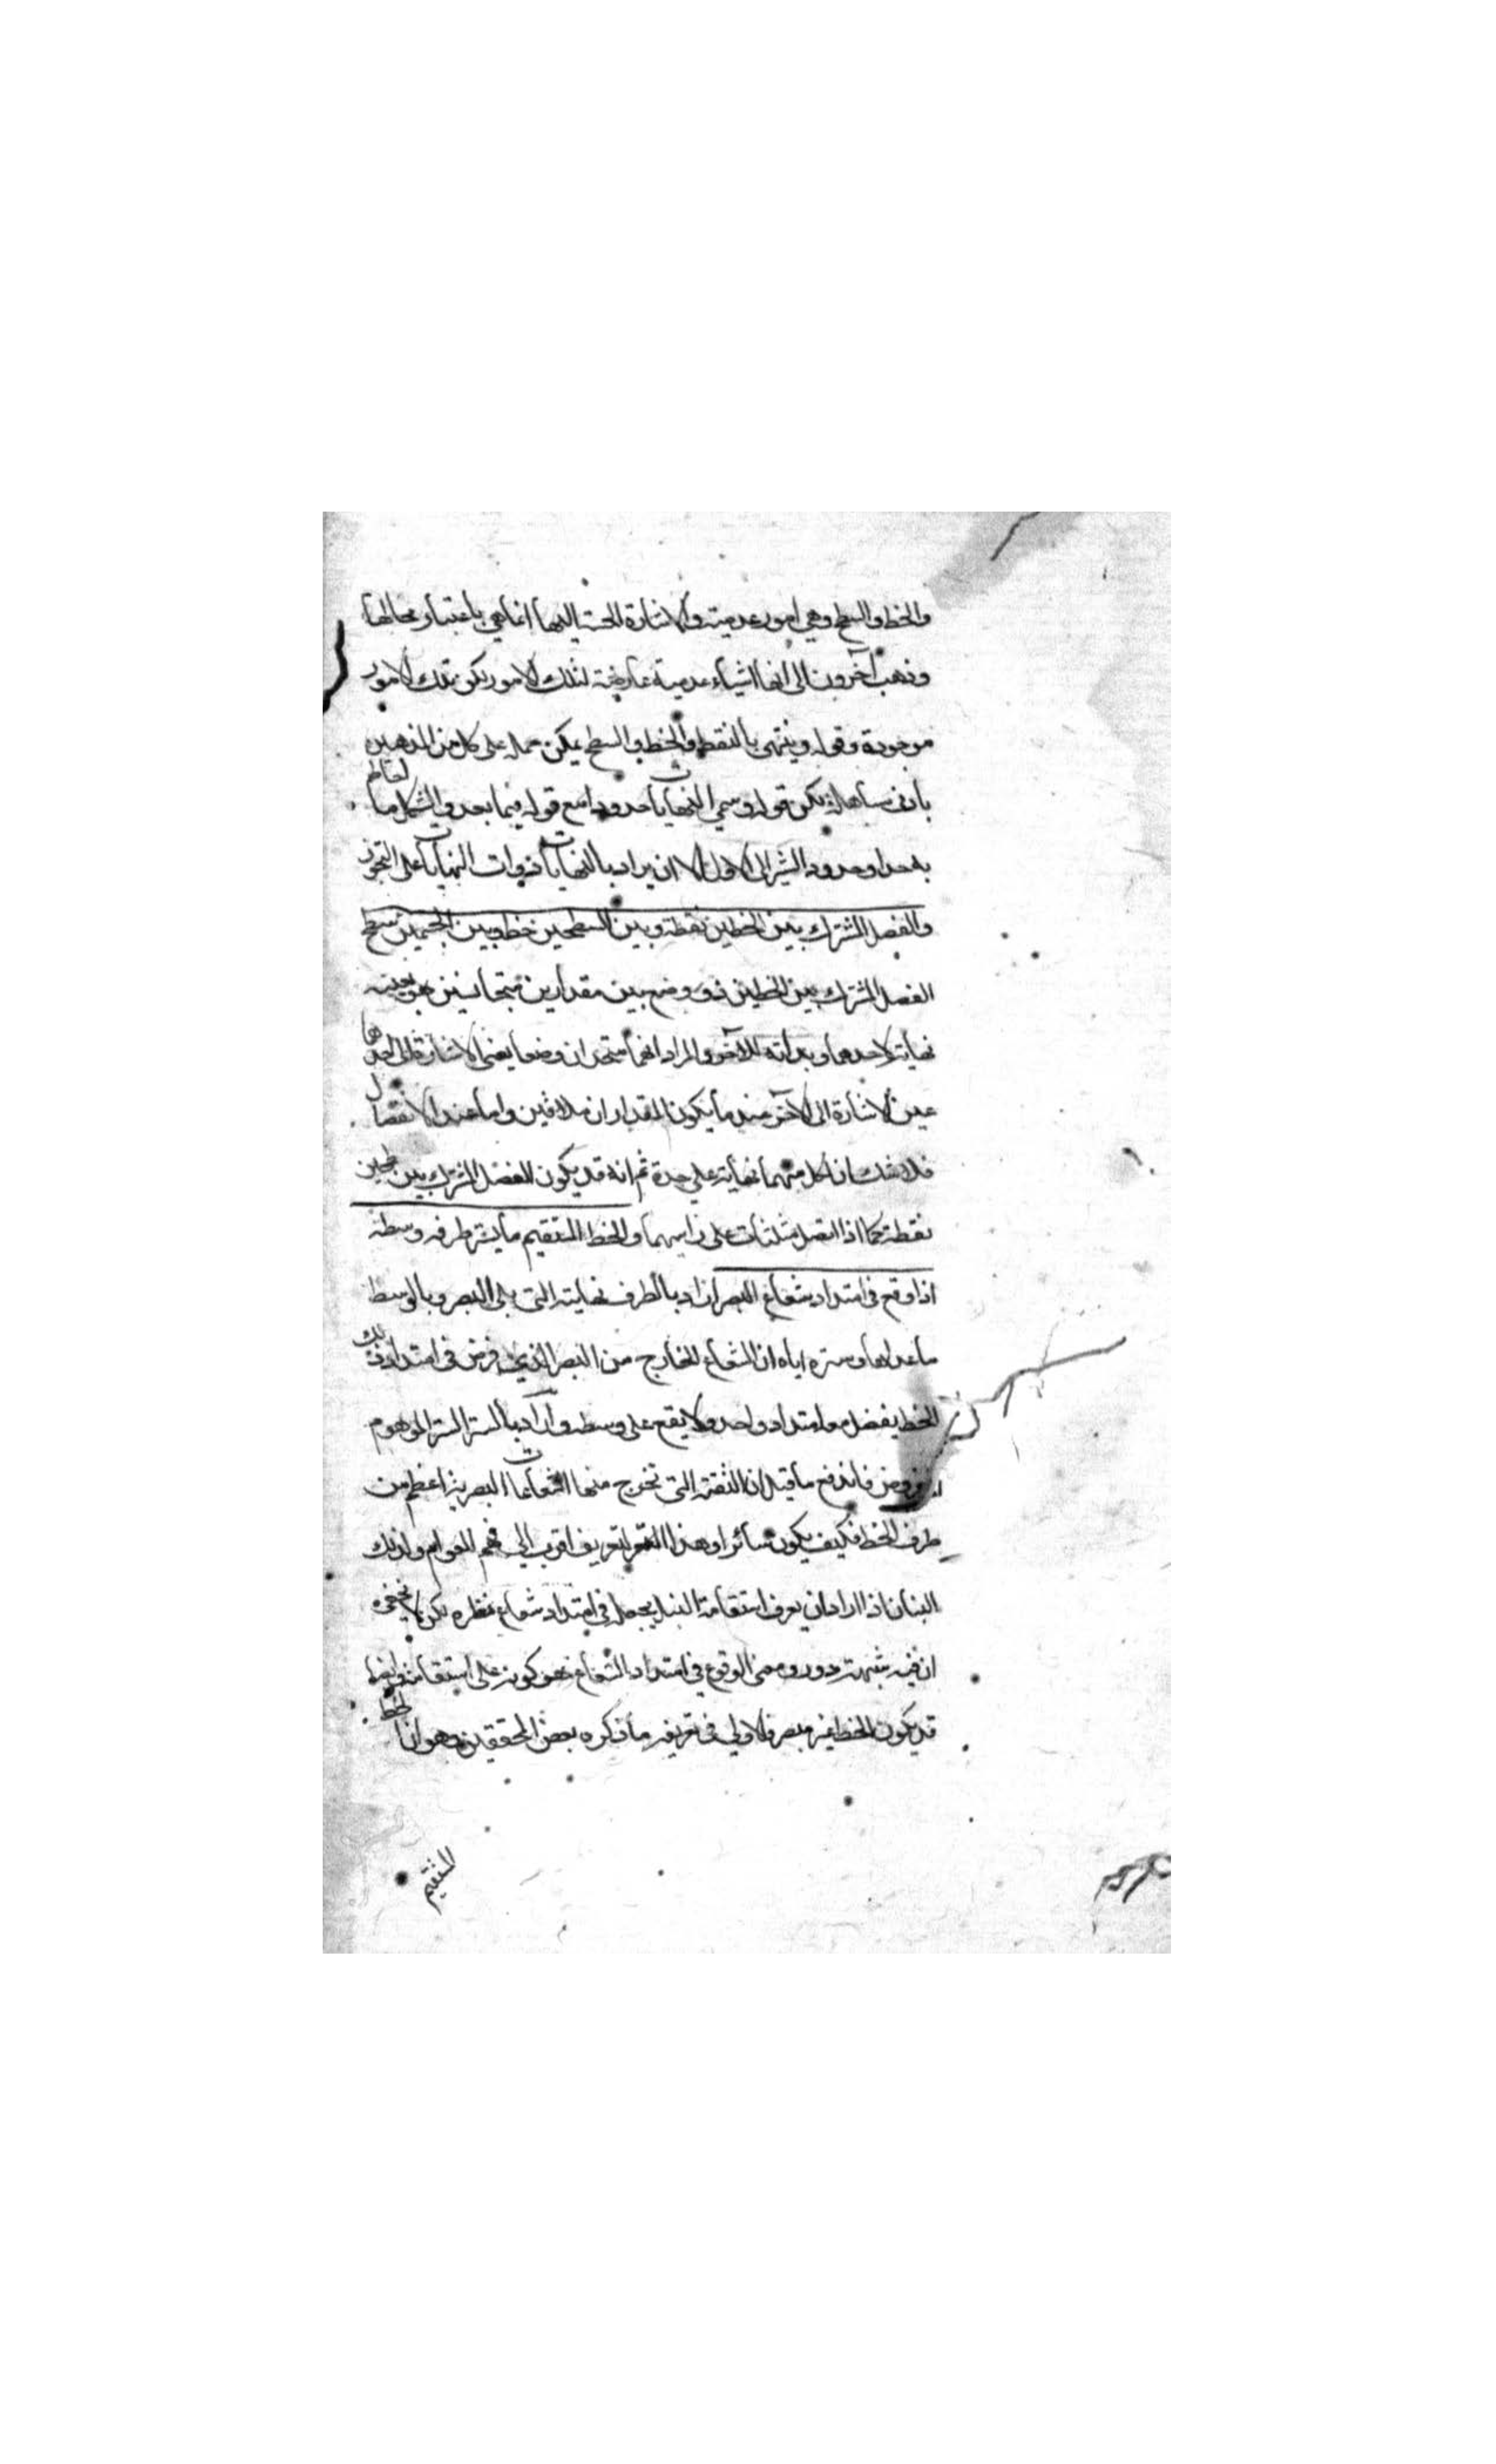 والخط والسطح وهي امور عدمية والاشارة الحسية اليها انما هي باعتبار محالها
وذهب آخرون الى انها اشياء عدمية عارضة لتلك الامور لكن تلك الامور
موجودة وقوله وينتهى بالنقطة والخط والسطح يمكن حمله على كل من المذهبين
بادنى مساهلة لكن قوله وسمى النهايات حدودا مع قوله فيما بعد والشكل ما احاط
به حد او حدود الشير الى الاول الا ان يراد بالنهايات ذوات النهايات على التجوز
والفصل المشترك بين الخطين نقطة وبين السطحين خط وبين الجسمين سطح
الفصل المشترك بين الخطين ذو وضع بين مقدارين متجانسين هو بعينه
نهاية لاحدهما وبداية للآخر والمراد انهما متحدان وضعا يعنى الاشارة الى احدهما
عين الاشارة الى الآخر عند ما يكون المقداران ملاقين واما عند الانفصال
فلا شك ان لكل منهما نهاية على حدة ثم انه قد يكون الفصل المشترك بين سطحين
نقطة كما اذا اتصل مثلثان على راسيهما والخط المستقيم ما يستر طرفه وسطه
اذا وقع فى امتداد شعاع البصر اراد بالطرف نهايته التى يلى البصر وبالوسط
ما عداها وستره اياه ان الشعاع الخارج من البصر الذى فرض فى امتداد ذلك
الخط يفضل معا امتداد واحد ولا يقع على وسطه واراد بالستر الستر الموهوم
المفروض فاندفع ما قيل ان الثقبة التى تخرج منها الشعاعات البصرية اعظم من
طرف الخط فكيف يكون ساترا وهذا التعريف اقرب الى فهم العوام ولذلك
البنان اذا اراد ان يعرف استقامة البناء يجعله فى امتداد شعاع نظره لكن لا يخفى
ان فيه شبهة دور ومعنى الوقوع فى امتداد الشعاع هو كونه على استقامته وايضا
قد يكون الخط غير مبصر فالاولى فى تعريفه ما ذكره بعض المحققين وهو ان الخط
المستقيم